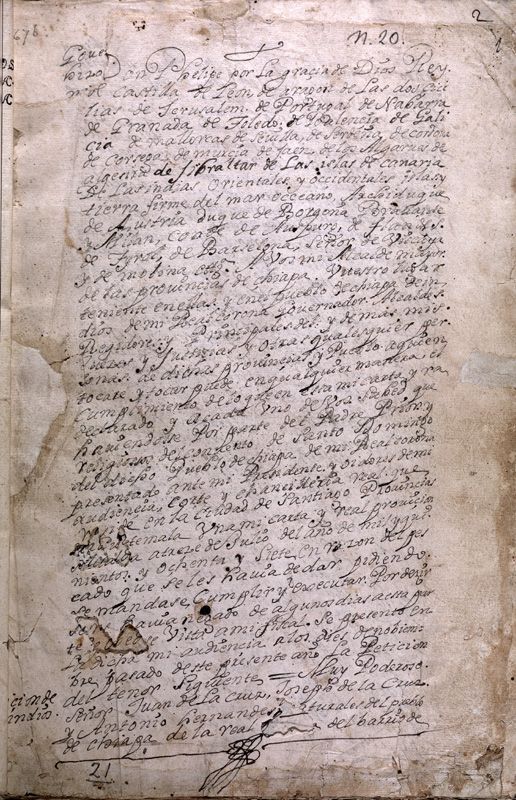 678
2
1
N. 20.
Gove
hizo
Don Phelipe por La gracia de Dios Rey
de Castilla de Leon de aragon de Las dos Cici
lias de Jerusalem de Portugal de Nabarra
de Granada de Toledo de Valencia de Gali
cia de mallorcas de Sevilla de Serdeña de cordova
de Corsega de murcia de Jaen de los Algarves de
algesira de Gibraltar de Las islas de canaria
de Las indias orientales y occidentales islas y
tierra firme del mar oceano, Archiduque
de Austria duque de Borgoña Bravante
y Milan, conde de Auspurg, de Flandes
de Tyrol de Barselona, señor de Viscaya
y de molina etc. A Vos mi Alcalde mayor
de las provincias de chiapa Vuestro lugar
teniente en ellas y en el Pueblo de chiapa de in
dios de mi Real Corona Governador Alcaldes
Regidores y Principales del y demas mis
Juezes y Justicias y otras qualesquier per
sonas de dichas provincias y Pueblo a quien
tocate y tocar puede en qualquier manera el
cumplimiento de lo que en esta mi carta y ra
declarado y a cada uno de Vos sabed que
haviendose Por parte del Padre Prior y
religiosos del convento de Santo Domingo
del dicho Pueblo de chiapa de mi Real corona
presentado ante mi Presidente y oidores de mi
audiencia, corte y chancilleria real que
reside en la ciudad de Santiago Provincias
de Guatemala Una mi carta y real provicion
a trese de Julio del año de mil y qui
nientos, y ochenta y Siete en razon del pes
cado que se les havia de dar pidiendo
se mandase Cumplir y executar Por desir
se havia negado de algunos dias a esta par
te Vista a mi fiscal. Se presento en
La dicha mi audiencia a los dies de nobiem
bre pasado de este presente año La Peticion
del tenor Siguiente = Muy Poderoso
cion de
indios.
Señor Juan de La Cruz, Joseph de la Cruz
y Antonio Hernandes naturales del pueblo
de chiapa de la real del barrio de
21